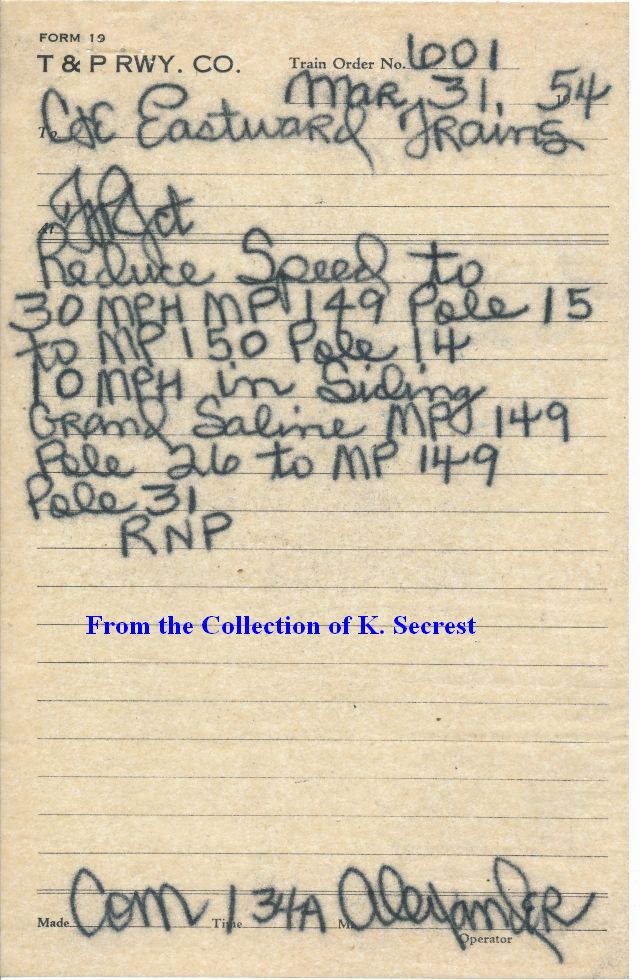 FORM 19
T & P RWY. CO. Train Order No. 601
Mar. 31, 1954
To C&E Eastward Trains
TP Jct
Reduce Speed to
30 MPH MP 149 Pole 15
to MP 150 Pole 14
10 MPH in Siding
Grand Saline MP 149
Pole 26 to MP 149
Pole 31
RNP
From the Collection of K. Secrest
Made Com Time 134A M Alexander
Operator